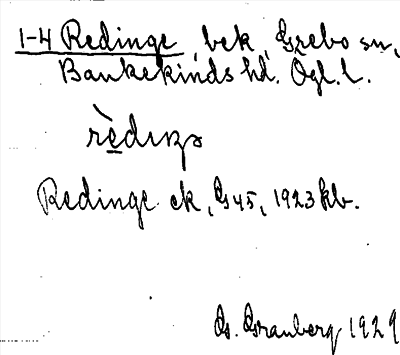 1-4 Redinge, bek, Grebo sn,
Bankekinds hd. Ögl. L.
Redinge ek, G45, 1923 kb.
G. Granberg 1929